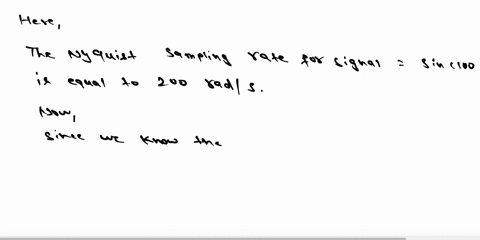 Here,
The Nyquist Sampling rate for signal = sinc100
is equal to 200 rad/s.
Now,
since we know the